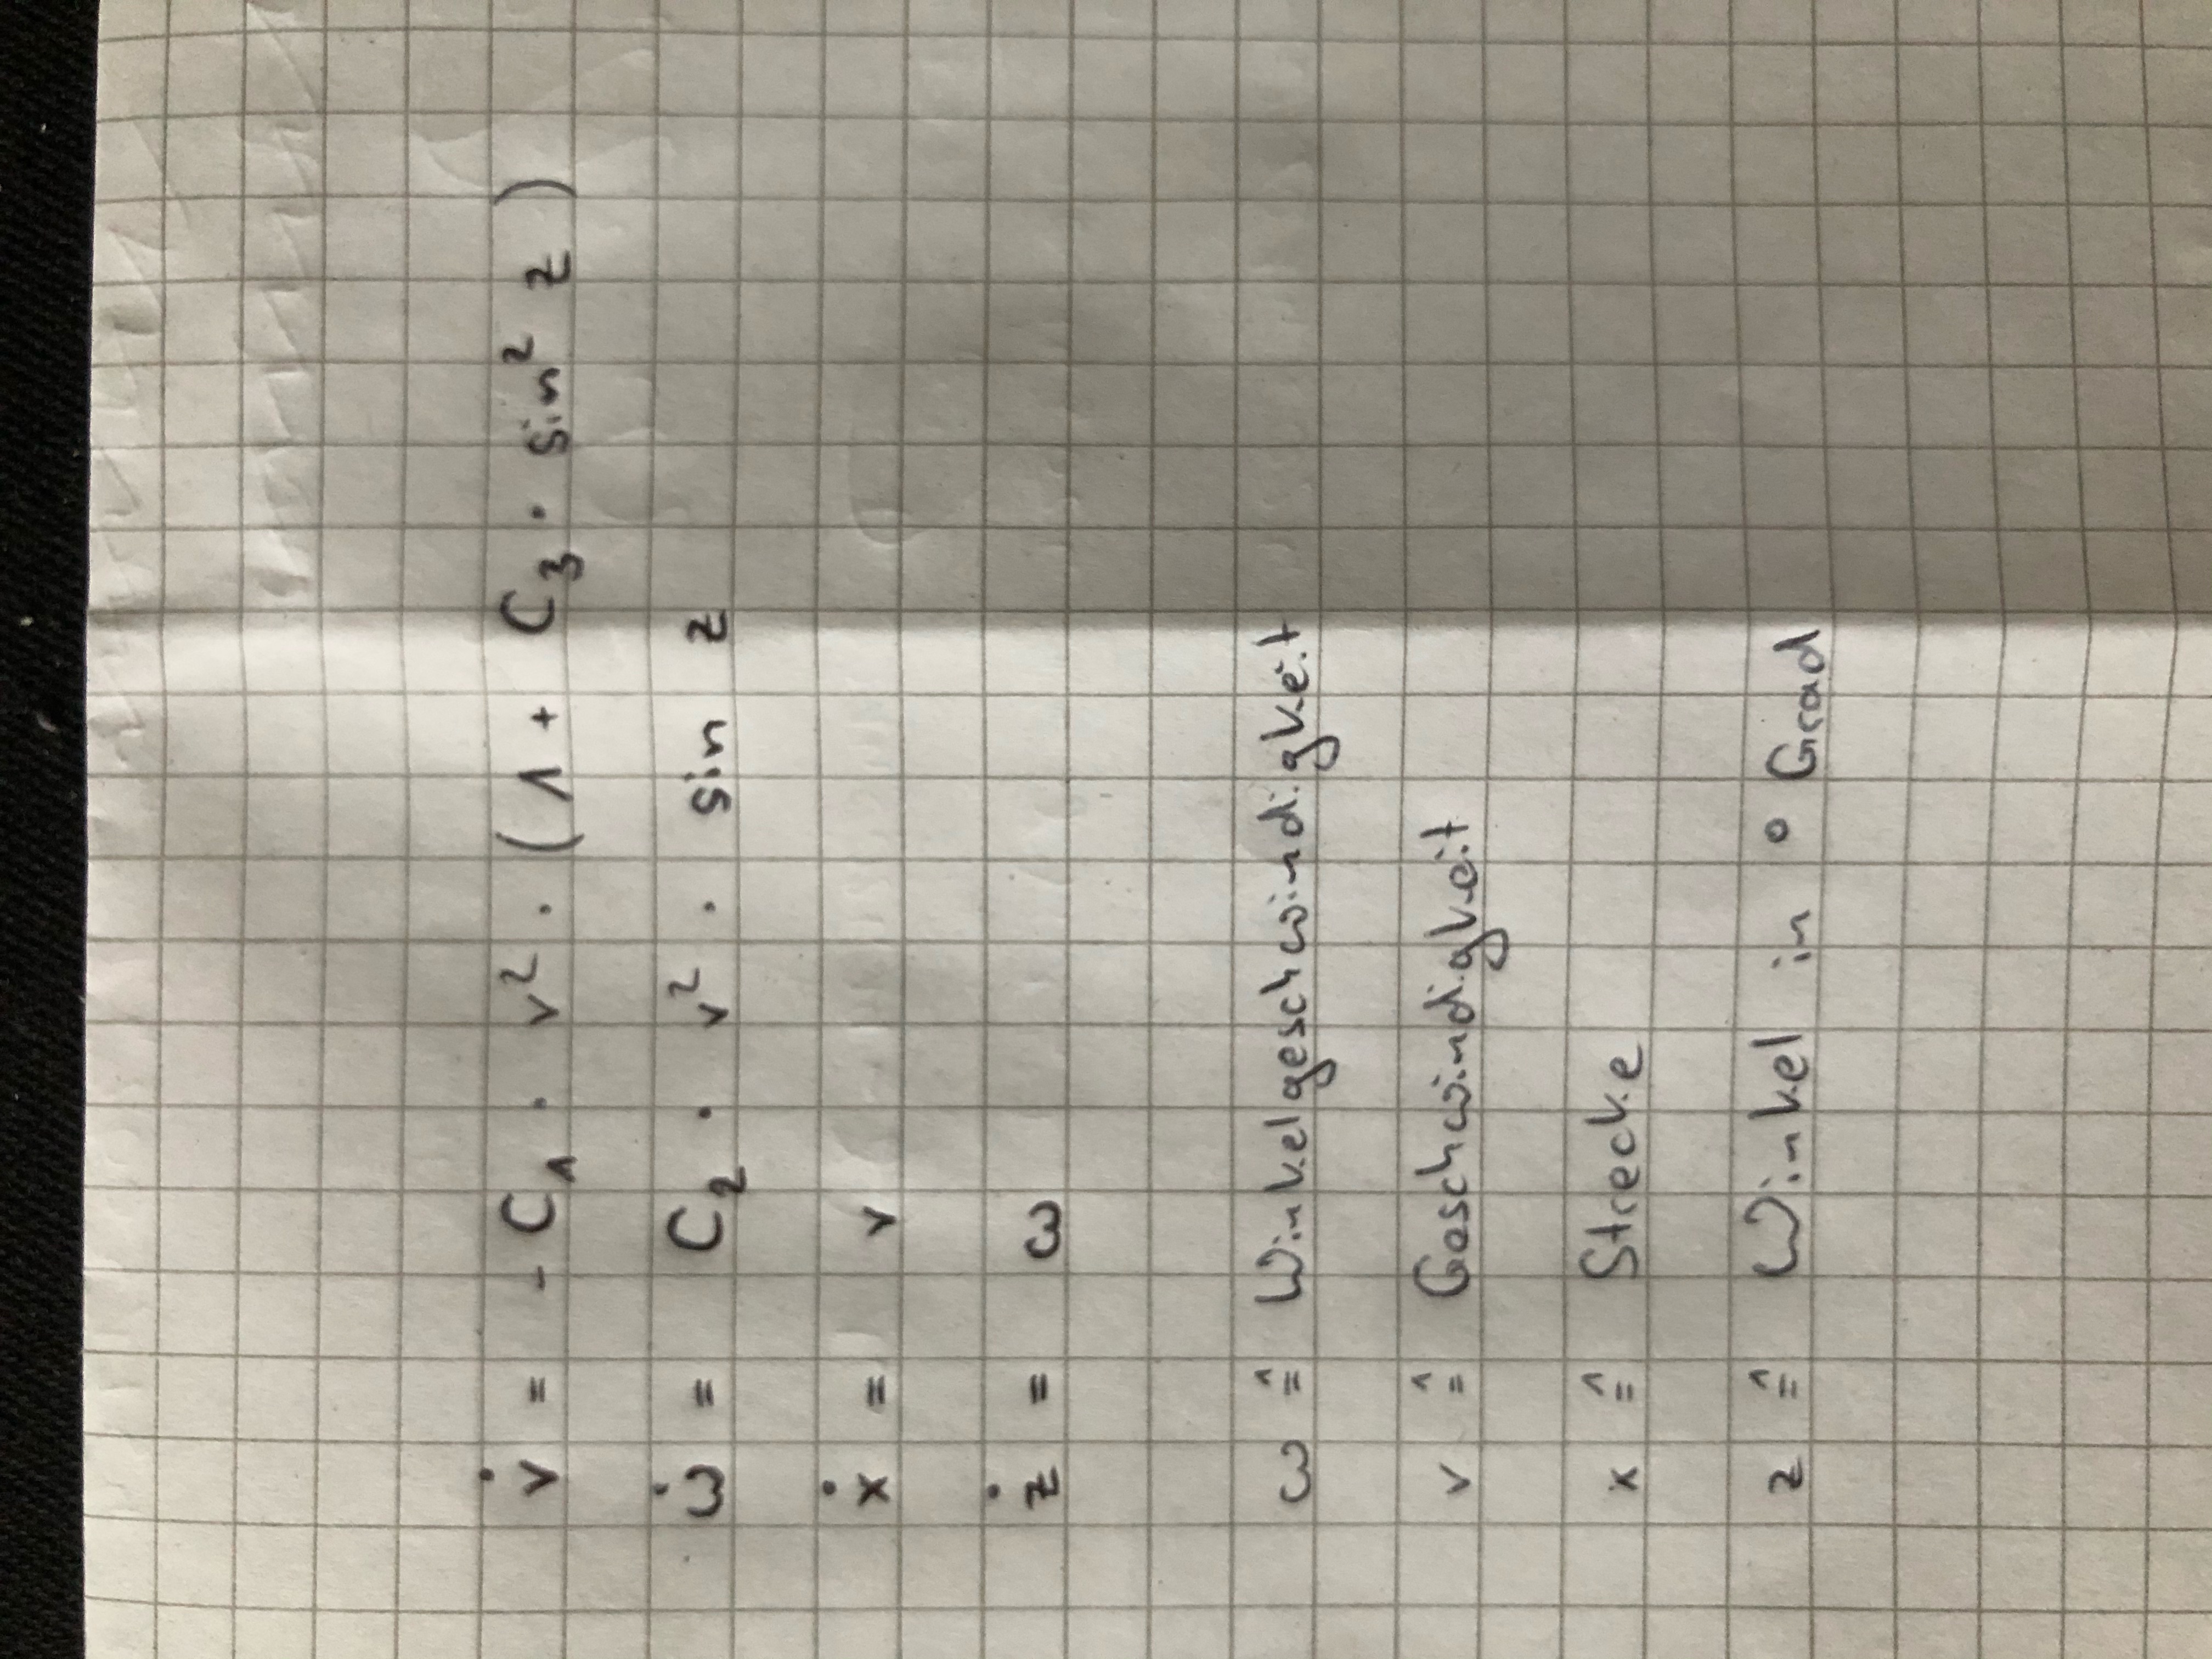 v̇ = - C₁ · v² · (1 + C₃ · sin² z)
ω̇ = C₂ · v² · sin z
ẋ = v
ż = ω
ω ≙ Winkelgeschwindigkeit
v ≙ Geschwindigkeit
x ≙ Strecke
z ≙ Winkel in ° Grad